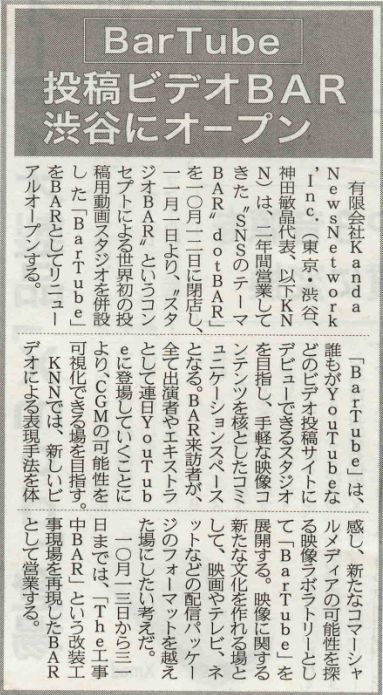 BarTube
投稿ビデオBAR
渋谷にオープン
有限会社Kanda
NewsNetwork
,Inc.(東京・渋谷、
神田敏晶代表、以下KN
N)は、二年間営業して
きた〝SNSのテーマ
BAR〟dotBAR〟
を一〇月一二日に閉店し、
一一月一日より、〝スタ
ジオBAR〟というコン
セプトによる世界初の投
稿用動画スタジオを併設
した「BarTube」
をBARとしてリニュー
アルオープンする。
「BarTube」は、
誰もがYouTubeな
どのビデオ投稿サイトに
デビューできるスタジオ
を目指し、手軽な映像コ
ンテンツを核としたコミ
ュニケーションスペース
となる。BAR来訪者が、
全て出演者やエキストラ
として連日YouTub
eに登場していくことに
より、CGMの可能性を
可視化できる場を目指す。
KNNでは、新しいビ
デオによる表現手法を体
感し、新たなコマーシャ
ルメディアの可能性を探
る映像ラボラトリーとし
て「BarTube」を
展開する。映像に関する
新たな文化を作れる場と
して、映画やテレビ、ネ
ットなどの配信パッケー
ジのフォーマットを越え
た場にしたい考えだ。
一〇月一三日から三一
日までは、「The工事
中BAR」という改装工
事現場を再現したBAR
として営業する。